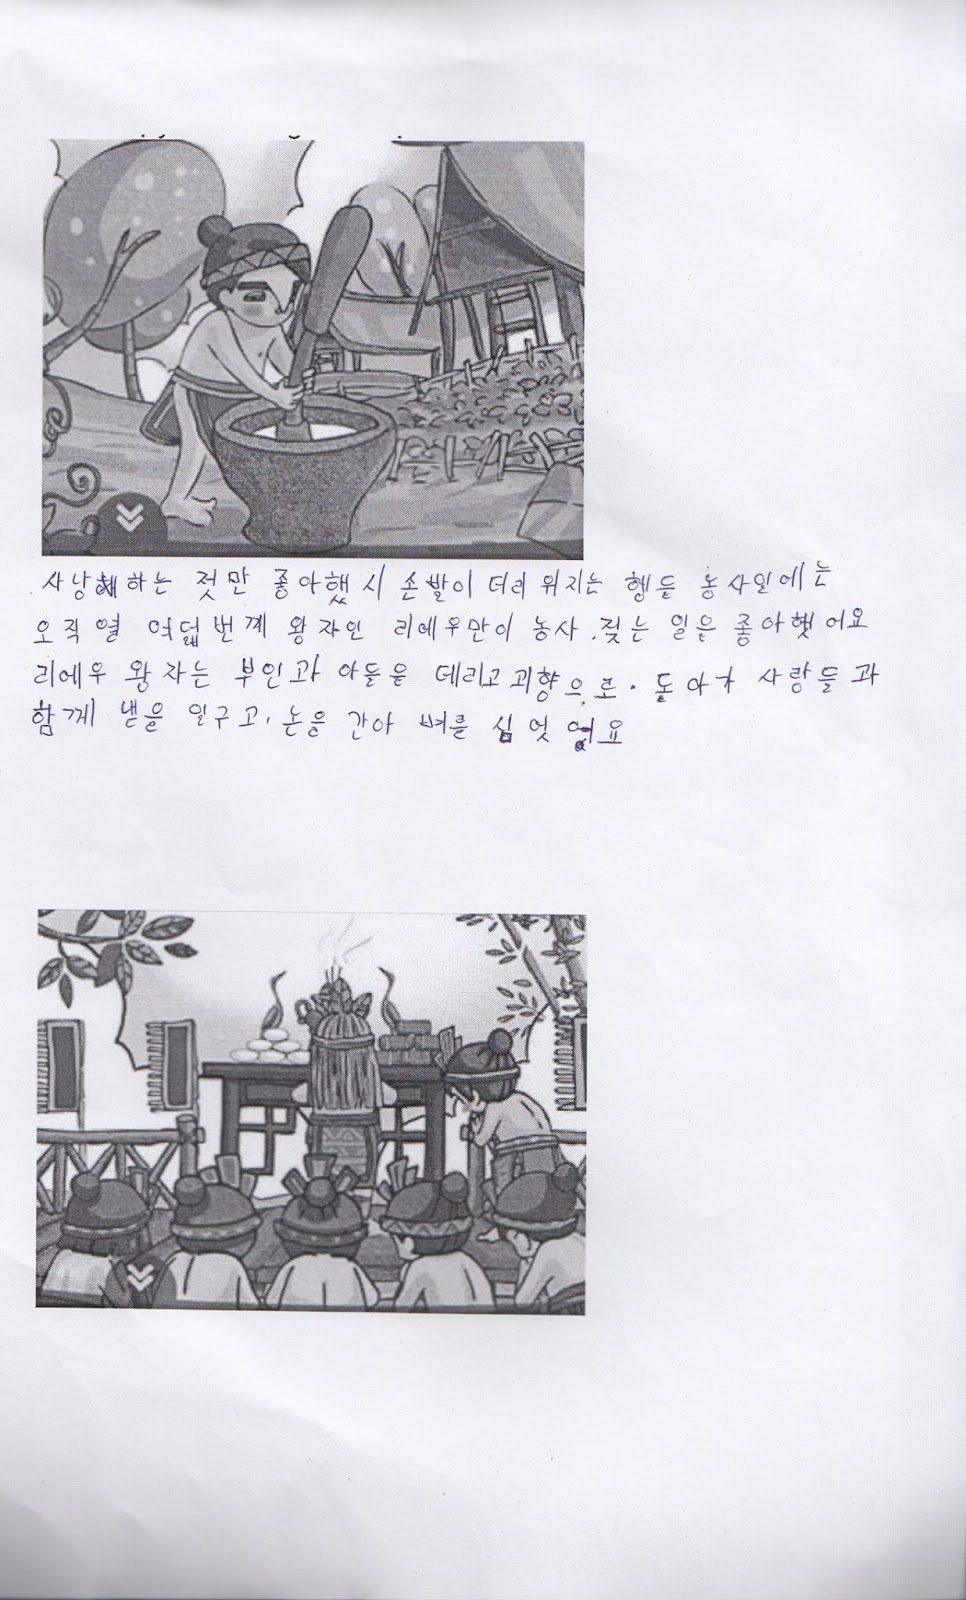 사냥해하는 젓만 좋아했시 손발이 더러 워지는 행든 농사일에는
오직 열 여덟번계 왕자인 리에우만이 농사.짖는 일은 좋아햇어요
리에우 왕자는 부인과 아들을 데리고 괴향으로. 돝아가 사람들과
함께 낻을 일구고, 논을 간아 벼를 심엇 어요